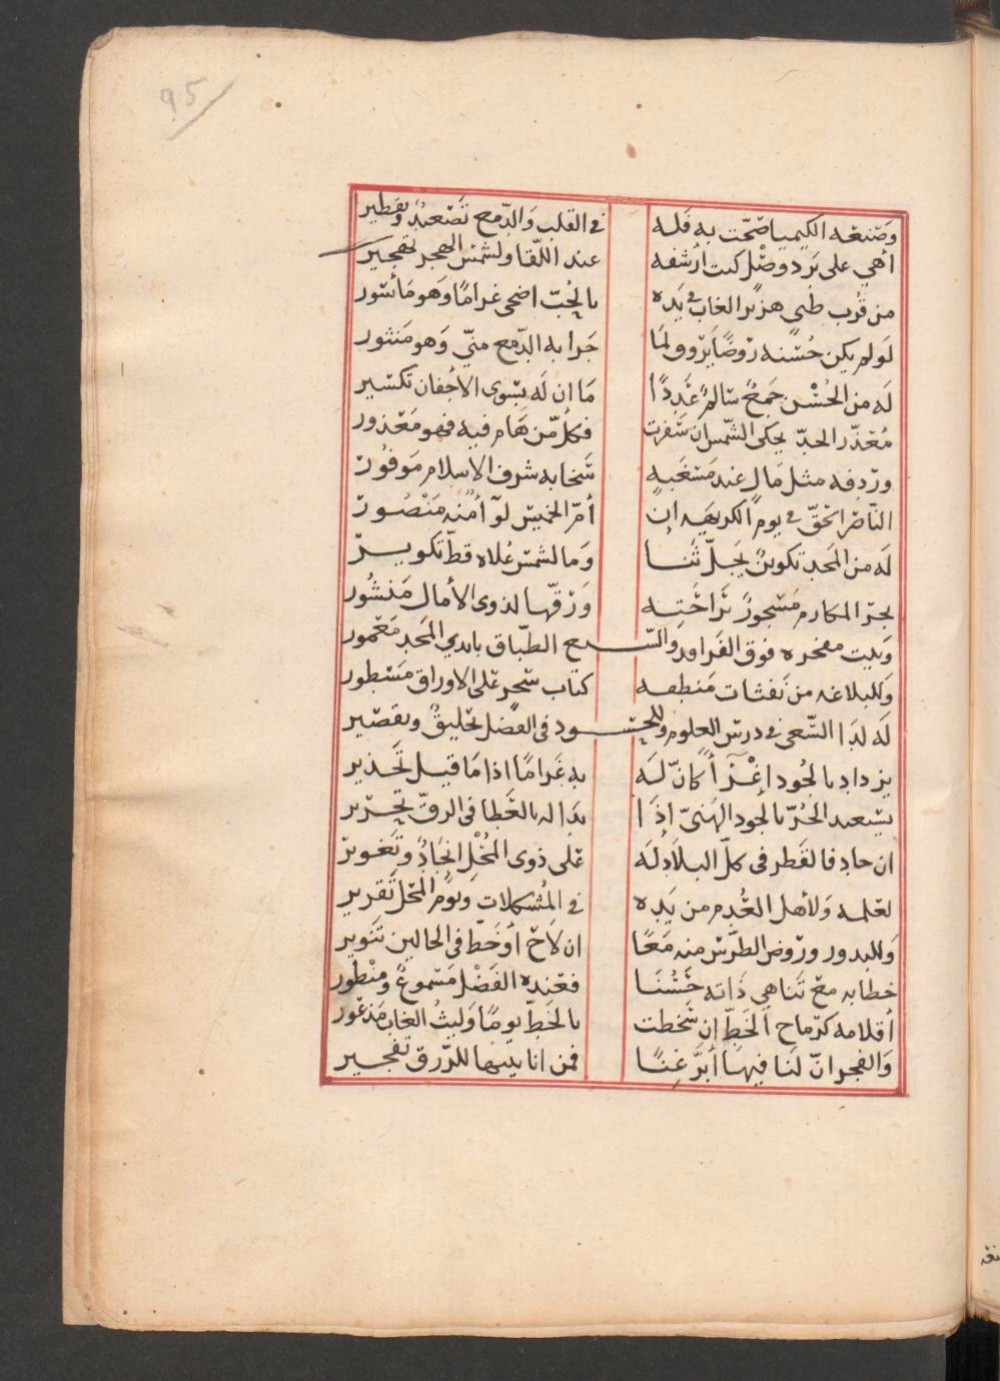 95
وَصَنعَه الكيميا صَحّت به فَله في القلب وَالدّمع تَصْعيدٌ وَتقطير
أهي على بَرد وصْل كنت أرشفه عند اللّقا ولشمس الهجر تهجير
من قُرب ظبي هزبر الغاب في يَده بالحُبّ اضحى غرامًا وَهو مَأسور
لَو لم يكن حُسْنه رَوضًا يَروق لمَا جَرا به الدّمع منّي وَهو مَنثور
لَه من الحُسْن جَمعٌ سَالمٌ عَدَدًا مَا ان لَه بسوى الاجْفان تكسير
مُعَذّر الخدّ يحكى الشّمس ان سَفرت فكلّ مَن هَام فيه فهو مَعْذور
وردفه مثل مَال عند مَسْغَبه سَخا به شرف الاسلام مَوفُورْ
النّاصر الحقّ في يوم الكريهه ان أمّ الخميس لوآ أمنه مَنْصُورْ
لَه من المَجد تكوينٌ يَجلّ ثَنا وَما لشمس عُلاه قطّ تكويرْ
بحرُ المكارم مَسْجورٌ بَرَاحَتِه وَرقّها لذوى الأمال مَنشُور
وَبيت مفخره فوق الفَراقد والسّبع الطّباق بايدي المَجد مَعْمور
وَللبلاغه من نَفثات مَنطقه كتاب سحر عَلى الاوراق مَسْطور
لَه لدَا السّعى في درس العلوم وللحسود في الفضل تحليقٌ وتقصير
يزداد بالجُود إغْرآً كأنّ لَه به غَرامًا اذا مَا قيل تَحذير
يستعبد الحُرّ بالجود الهَنيّ إذَا بَدَا له بالعَطا في الرقّ تحرير
ان جاد فالقَطر في كلّ البلاَد لَه عَلى ذوى المَحْل انجَادٌ وتَغوير
لعلمه وَلأهل العُدم من يَده في المُشكلات وَيوم المَحل تَقرير
وَللبدور وروض الطّرس منه مَعًا ان لاَح أو خَطّ في الحالين تَنوير
خطابه مع تَناهي ذَاته حَسُنَا فعنده الفَضْل مَسْموعٌ ومنْظور
أقلامه كرمَاح الخَطّ إن سَخطت بالخَطّ يومًا وَليثُ الغاب مَذعُور
وَالفجر انّ لَنا فيهَا أبَرَّ غِنًا فمن انا بيبها للرّزق تفجير